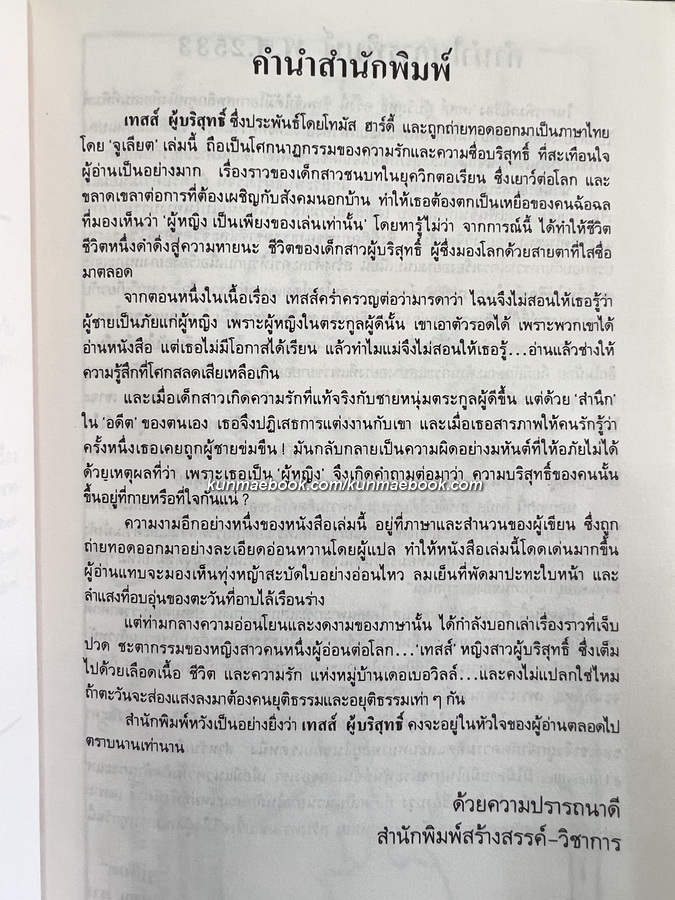 คำนำสำนักพิมพ์
เทสส์ ผู้บริสุทธิ์ ซึ่งประพันธ์โดยโทมัส ฮาร์ดี้ และถูกถ่ายทอดออกมาเป็นภาษาไทย
โดย ‘จูเลียต’ เล่มนี้ ถือเป็นโศกนาฏกรรมของความรักและความซื่อบริสุทธิ์ ที่สะเทือนใจ
ผู้อ่านเป็นอย่างมาก เรื่องราวของเด็กสาวชนบทในยุควิกตอเรียน ซึ่งเยาว์ต่อโลก และ
ขลาดเขลาต่อการที่ต้องเผชิญกับสังคมนอกบ้าน ทำให้เธอต้องตกเป็นเหยื่อของคนฉ้อฉล
ที่มองเห็นว่า ‘ผู้หญิง เป็นเพียงของเล่นเท่านั้น’ โดยหารู้ไม่ว่า จากการณ์นี้ ได้ทำให้ชีวิต
ชีวิตหนึ่งดำดิ่งสู่ความหายนะ ชีวิตของเด็กสาวผู้บริสุทธิ์ ผู้ซึ่งมองโลกด้วยสายตาที่ใสซื่อ
มาตลอด
จากตอนหนึ่งในเนื้อเรื่อง เทสส์คร่ำครวญต่อว่ามารดาว่า ไฉนจึงไม่สอนให้เธอรู้ว่า
ผู้ชายเป็นภัยแก่ผู้หญิง เพราะผู้หญิงในตระกูลผู้ดีนั้น เขาเอาตัวรอดได้ เพราะพวกเขาได้
อ่านหนังสือ แต่เธอไม่มีโอกาสได้เรียน แล้วทำไมแม่จึงไม่สอนให้เธอรู้...อ่านแล้วช่างให้
ความรู้สึกที่โศกสลดเสียเหลือเกิน
และเมื่อเด็กสาวเกิดความรักที่แท้จริงกับชายหนุ่มตระกูลผู้ดีขึ้น แต่ด้วย ‘สำนึก’
ใน ‘อดีต’ ของตนเอง เธอจึงปฏิเสธการแต่งงานกับเขา และเมื่อเธอสารภาพให้คนรักรู้ว่า
ครั้งหนึ่งเธอเคยถูกผู้ชายข่มขืน ! มันกลับกลายเป็นความผิดอย่างมหันต์ที่ให้อภัยไม่ได้
ด้วยเหตุผลที่ว่า เพราะเธอเป็น ‘ผู้หญิง’ จึงเกิดคำถามต่อมาว่า ความบริสุทธิ์ของคนนั้น
kunmaebook.com/kunmaebook.com
ขึ้นอยู่ที่กายหรือที่ใจกันแน่ ?
ความงามอีกอย่างหนึ่งของหนังสือเล่มนี้ อยู่ที่ภาษาและสำนวนของผู้เขียน ซึ่งถูก
ถ่ายทอดออกมาอย่างละเอียดอ่อนหวานโดยผู้แปล ทำให้หนังสือเล่มนี้โดดเด่นมากขึ้น
ผู้อ่านแทบจะมองเห็นทุ่งหญ้าสะบัดใบอย่างอ่อนไหว ลมเย็นที่พัดมาปะทะใบหน้า และ
ลำแสงที่อบอุ่นของตะวันที่อาบไล้เรือนร่าง
แต่ท่ามกลางความอ่อนโยนและงดงามของภาษานั้น ได้กำลังบอกเล่าเรื่องราวที่เจ็บ
ปวด ชะตากรรมของหญิงสาวคนหนึ่งผู้อ่อนต่อโลก...‘เทสส์’ หญิงสาวผู้บริสุทธิ์ ซึ่งเต็ม
ไปด้วยเลือดเนื้อ ชีวิต และความรัก แห่งหมู่บ้านเดอเบอวิลล์...และคงไม่แปลกใช่ไหม
ถ้าตะวันจะส่องแสงลงมาต้องคนยุติธรรมและอยุติธรรมเท่า ๆ กัน
สำนักพิมพ์หวังเป็นอย่างยิ่งว่า เทสส์ ผู้บริสุทธิ์ คงจะอยู่ในหัวใจของผู้อ่านตลอดไป
ตราบนานเท่านาน
ด้วยความปรารถนาดี
สำนักพิมพ์สร้างสรรค์-วิชาการ